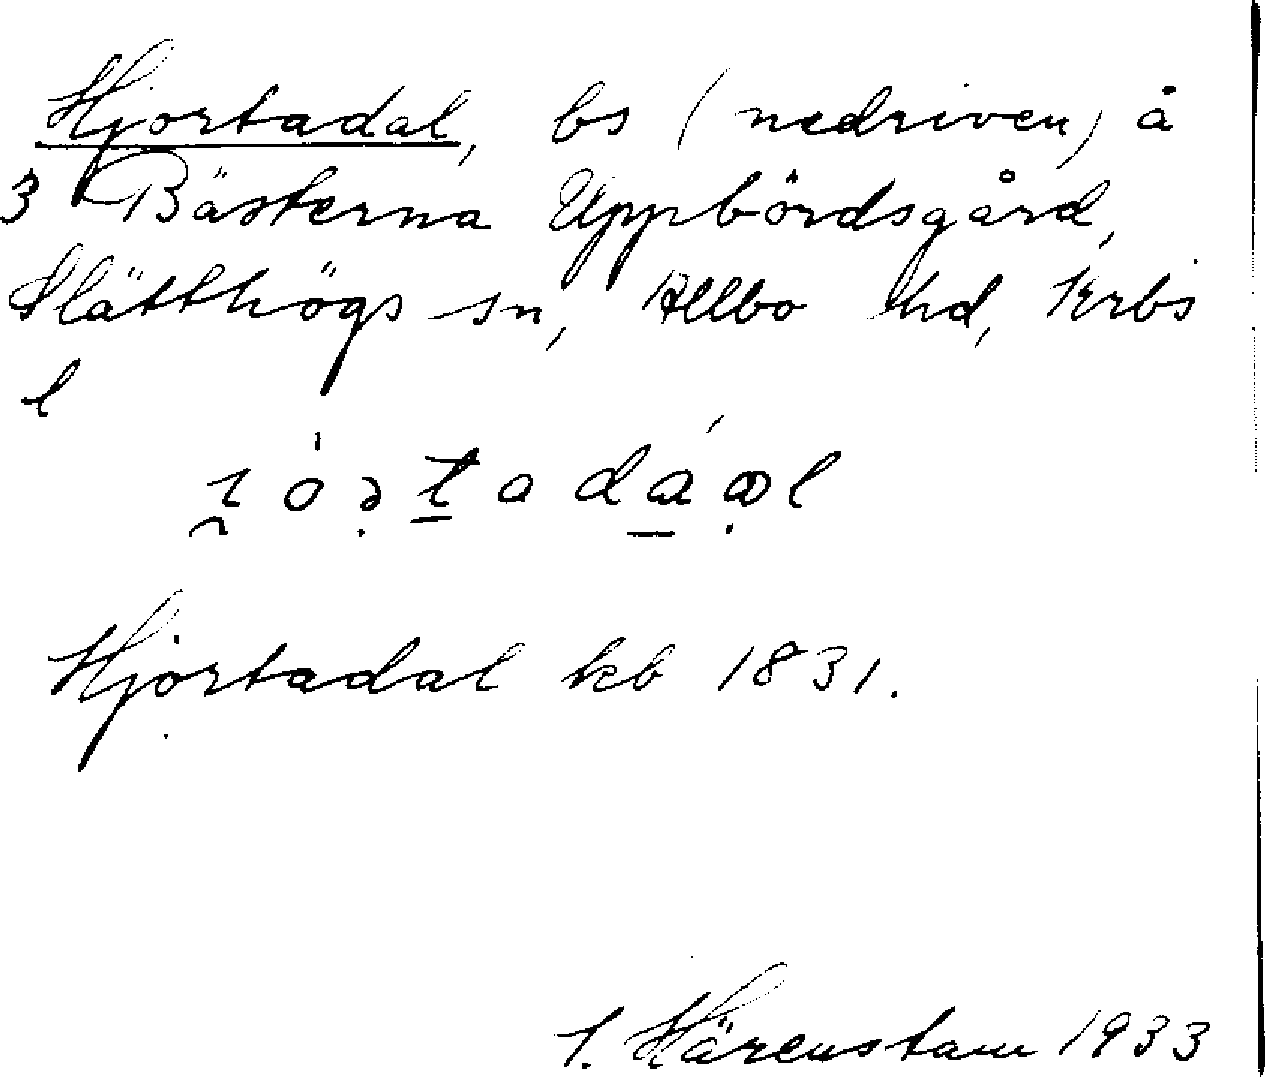 Hjortadal, bs (nedriven) å
3 Bästerna Uppbördsgård,
Slätthögs sn, Allbo hd, Krbs
l
Hjortadal kb 1831.
Härenstam 1933